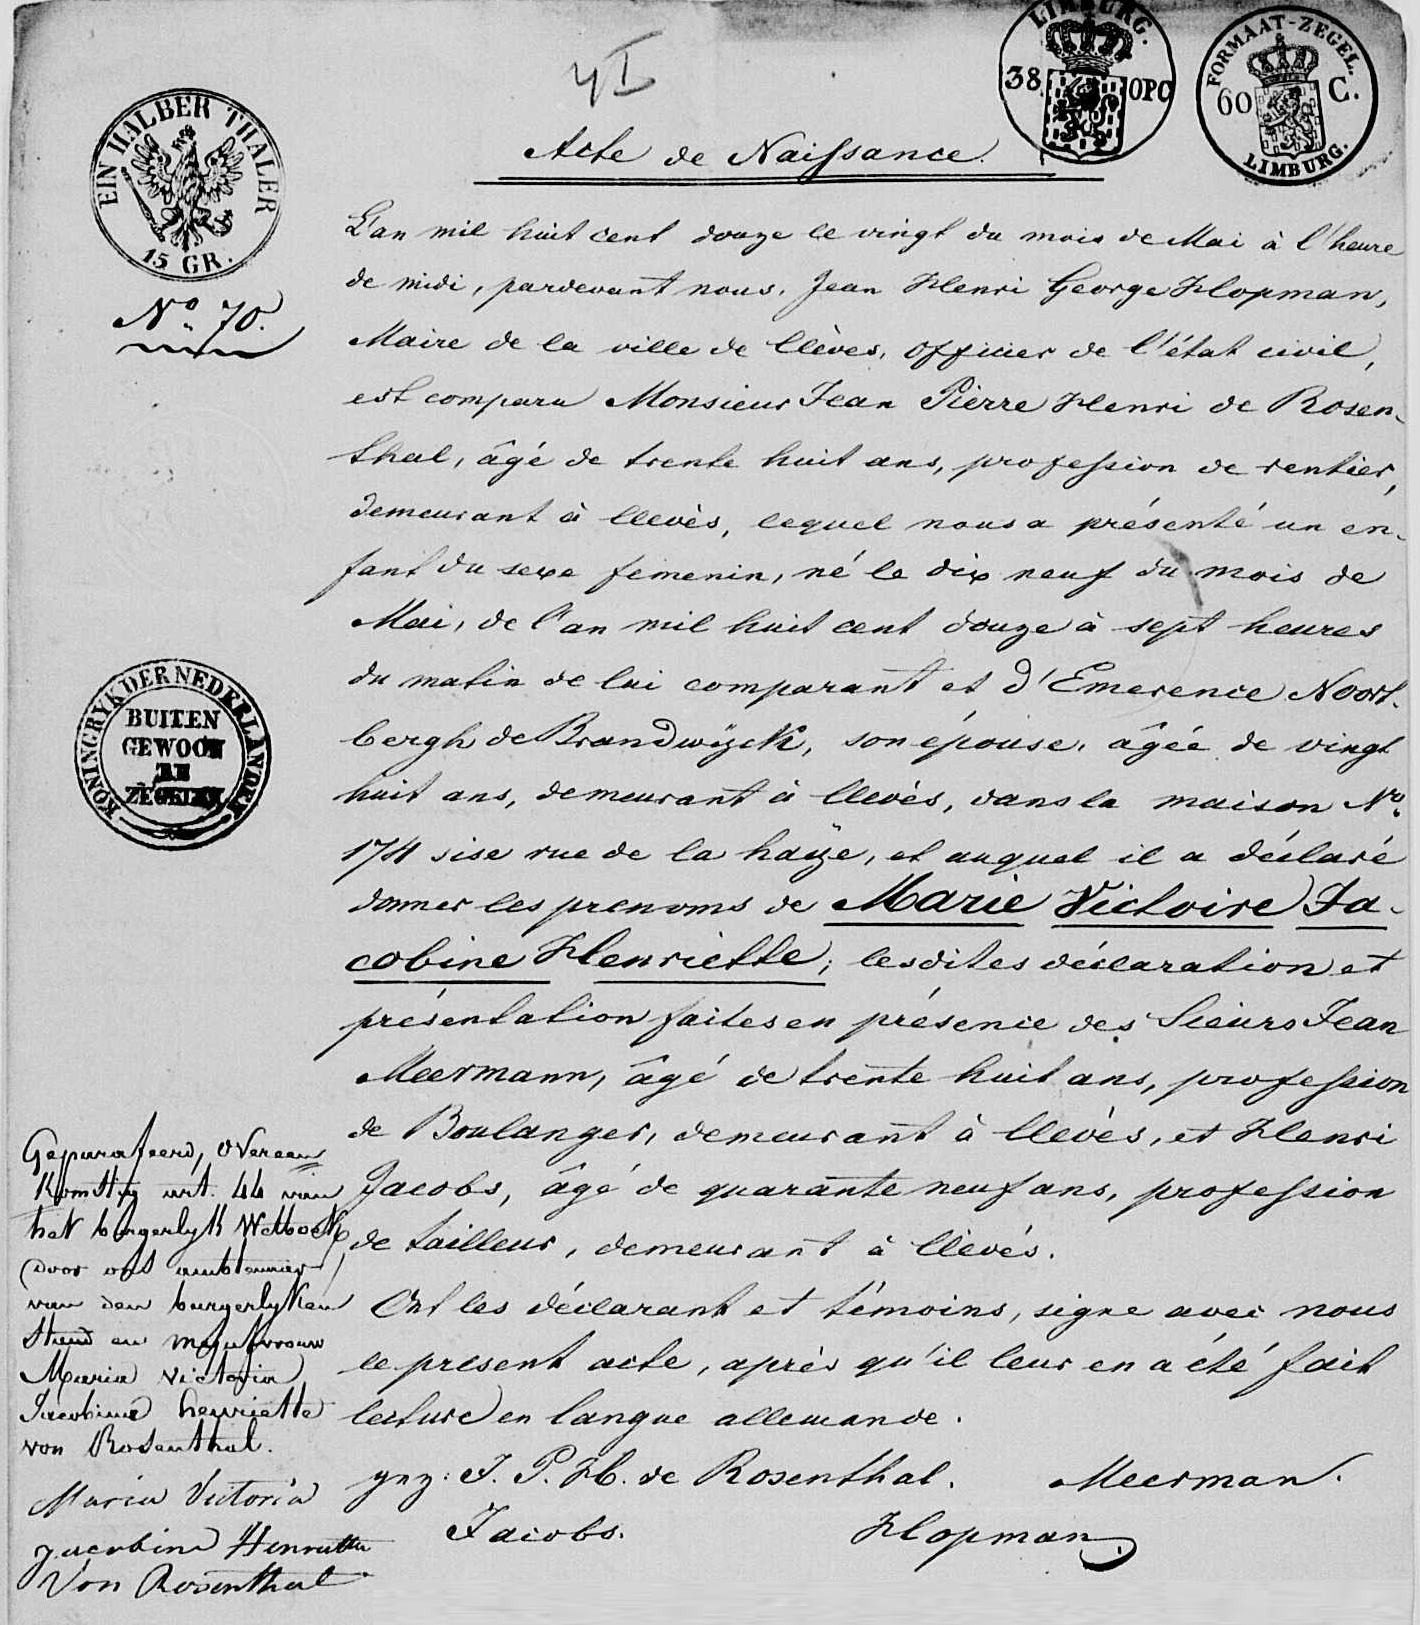 4I
LIMBURG.
38 OPC
FORMAAT-ZEGEL.
60 C.
LIMBURG.
EIN HALBER THALER
15 GR.
Acte de Naissance.
No. 70.
L'an mil huit cent douze le vingt du mois de Mai à l'heure
de midi, pardevant nous, Jean Henri George Hopman,
Maire de la ville de Clèves, officier de l'état civil,
est comparu Monsieur Jean Pierre Henri de Rosen-
thal, âgé de trente huit ans, profession de rentier,
demeurant à Clevès, lequel nous a présenté un en-
fant du sexe femenin, né le dix neuf du mois de
Mai, de l'an mil huit cent douze à sept heures
du matin de lui comparant et d'Emerence Noort-
bergh de Brandwÿck, son épouse, âgée de vingt
huit ans, demeurant à Clevés, dans la maison No.
174 sise rue de la haÿe, et auquel il a déclaré
donner les prenoms de Marie Victoire Ja-
cobine Henriette; lesdites déclaration et
présentation faites en présence des Sieurs Jean
Meermann, âgé de trente huit ans, profession
de Boulanger, demeurant à Clevés, et Henri
Jacobs, âgé de quarante neuf ans, profession
de tailleur, demeurant à Clévés.
Ont les déclarant et témoins, signe avec nous
le present acte, après qu'il leur en a été fait
lecture en langue allemande.
gez: J. P. H. de Rosenthal. Meerman.
Jacobs. Hopman.
KONINGRYK DER NEDERLANDEN
BUITEN
GEWOON
ZEGELEN
Geparafeerd, overeen
komstig art. 44 van
het burgerlyk Wetboek,
door ons ambtenaar
van den burgerlyken
Stand en mejufvrouw
Maria Victoria
Jacobina henriette
von Rosenthal.
Maria Victoria
Jacobina Henriette
Von Rosenthal